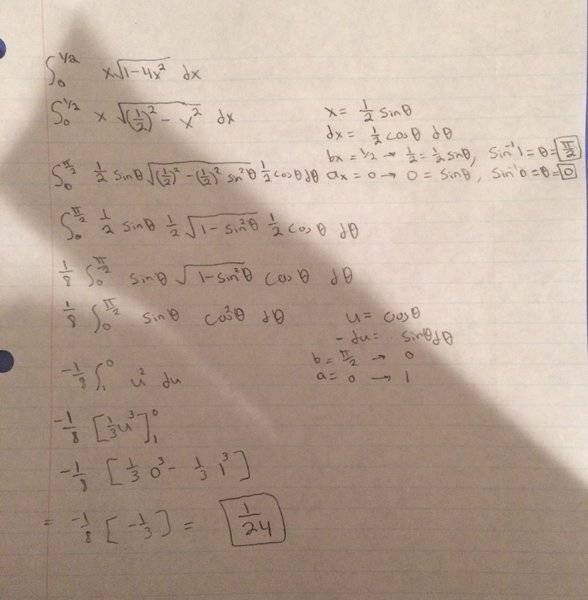 ∫₀^{1/2} x√(1-4x²) dx
∫₀^{1/2} x √((1/2)² - x²) dx
x = 1/2 sinθ
dx = 1/2 cosθ dθ
bx = 1/2 → 1/2 = 1/2 sinθ, sin⁻¹1 = θ = π/2
ax = 0 → 0 = sinθ, sin⁻¹0 = θ = 0
∫₀^{π/2} 1/2 sinθ √((1/2)² - (1/2)² sin²θ) 1/2 cosθ dθ
∫₀^{π/2} 1/2 sinθ 1/2 √(1-sin²θ) 1/2 cosθ dθ
1/8 ∫₀^{π/2} sinθ √(1-sin²θ) cosθ dθ
1/8 ∫₀^{π/2} sinθ cos²θ dθ
u = cosθ
-du = sinθdθ
b = π/2 → 0
a = 0 → 1
-1/8 ∫₁⁰ u² du
-1/8 [1/3 u³]₁⁰
-1/8 [1/3 0³ - 1/3 1³]
= -1/8 [-1/3] = 1/24